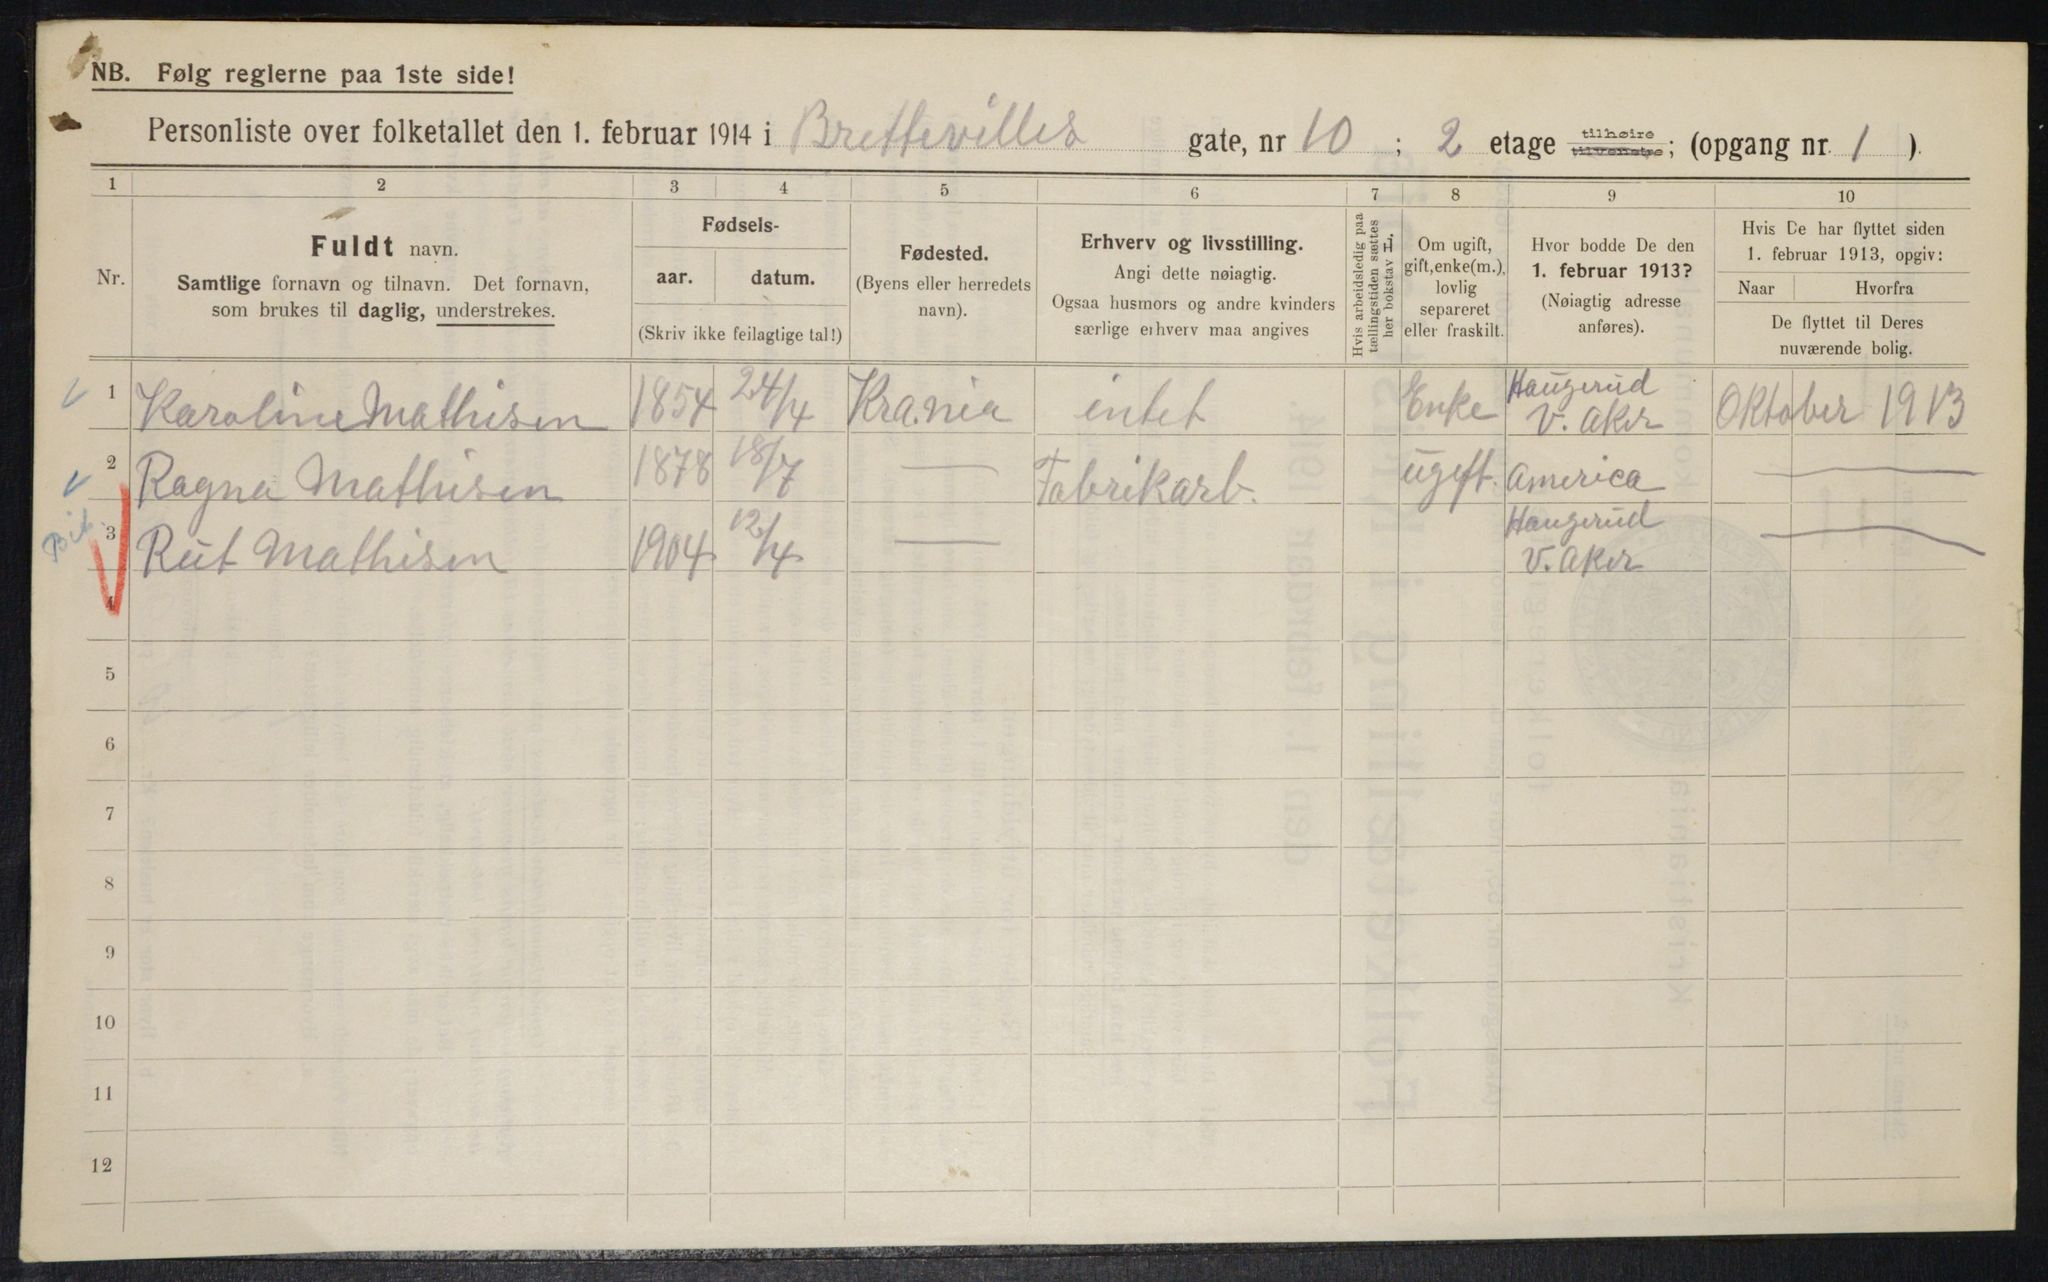 NB. Følg reglerne paa 1ste side!
Personliste over folketallet den 1. februar 1914 i Brettevilles gate, nr 10 ; 2 etage tilhøire tilvenstre; (opgang nr. 1 ).
1 2 3 4 5 6 7 8 9 10
Nr.
Fuldt navn.
Samtlige fornavn og tilnavn. Det fornavn,
som brukes til daglig, understrekes.
Fødsels-
aar. datum.
(Skriv ikke feilagtige tal!)
Fødested.
(Byens eller herredets
navn).
Erhverv og livsstilling.
Angi dette nøiagtig.
Ogsaa husmors og andre kvinders
særlige erhverv maa angives
Hvis arbeidsledig paa
tællingstiden sættes
her bokstav L.
Om ugift,
gift, enke(m.),
lovlig
separeret
eller fraskilt.
Hvor bodde De den
1. februar 1913?
(Nøiagtig adresse
anføres).
Hvis De har flyttet siden
1. februar 1913, opgiv:
Naar Hvorfra
De flyttet til Deres
nuværende bolig.
1 Karoline Mathisen 1854 24/4 Krania intet Enke Haugerud V. Aker Oktober 1913
2 Ragna Mathisen 1878 18/7 — Fabrikarb. ugift. America —
3 Rut Mathisen 1904 12/4 — Haugerud V. Aker —
4
5
6
7
8
9
10
11
12